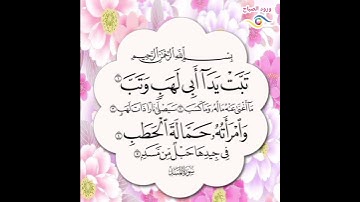 ورود الصباح
بِسْمِ اللَّهِ الرَّحْمَٰنِ الرَّحِيمِ
تَبَّتْ يَدَآ أَبِى لَهَبٍ وَتَبَّ ١
مَآ أَغْنَىٰ عَنْهُ مَالُهُۥ وَمَا كَسَبَ ٢ سَيَصْلَىٰ نَارًا ذَاتَ لَهَبٍ ٣
وَٱمْرَأَتُهُۥ حَمَّالَةَ ٱلْحَطَبِ ٤
فِى جِيدِهَا حَبْلٌ مِّن مَّسَدٍۭ ٥
سورة المسد